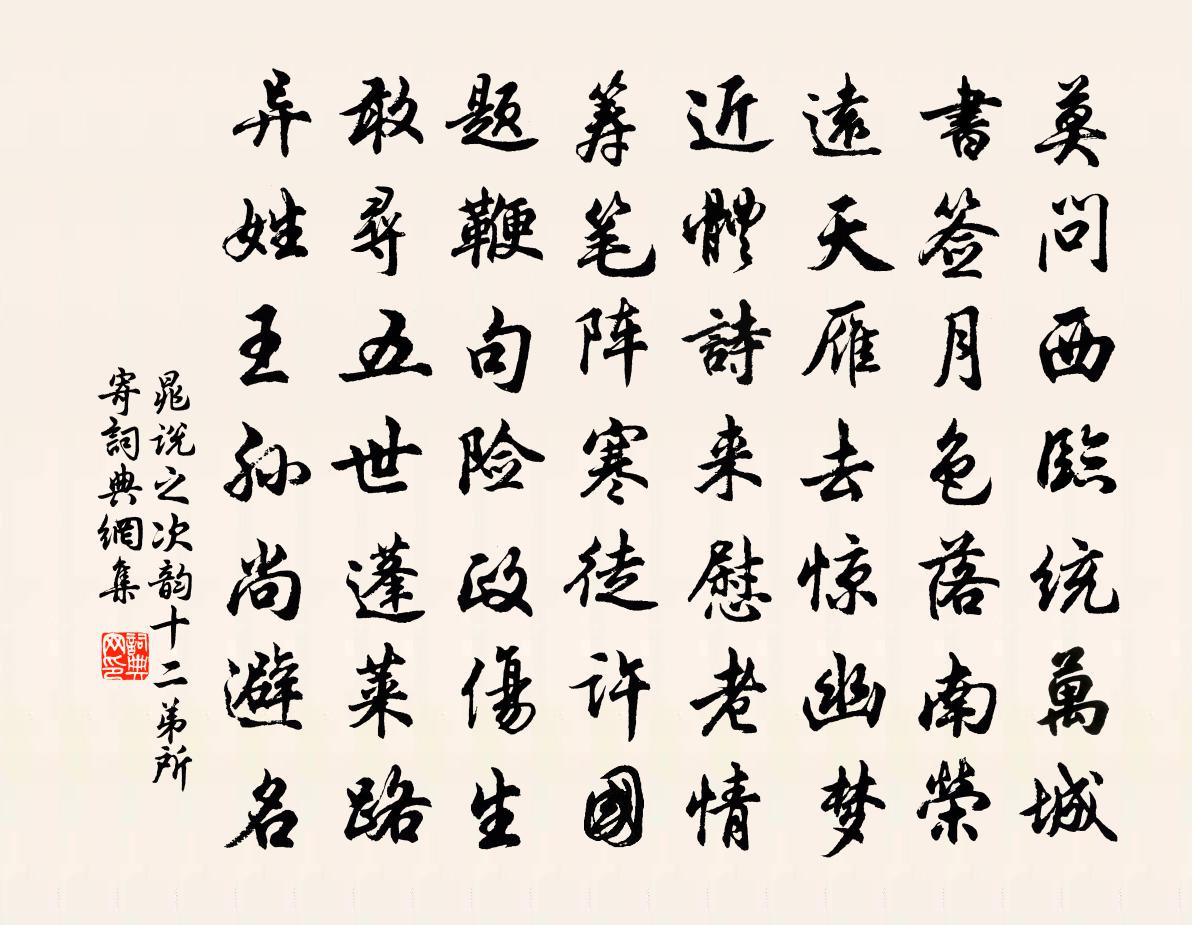 莫问西临统萬城
書签月色落南榮
遠天雁去惊幽梦
近體詩来慰老情
筹笔阵寒徒许國
题鞭句险政傷生
敢尋五世蓬莱路
异姓王孙尚避名
晁说之次韵十二弟所
寄詞典網集
詞典
网印